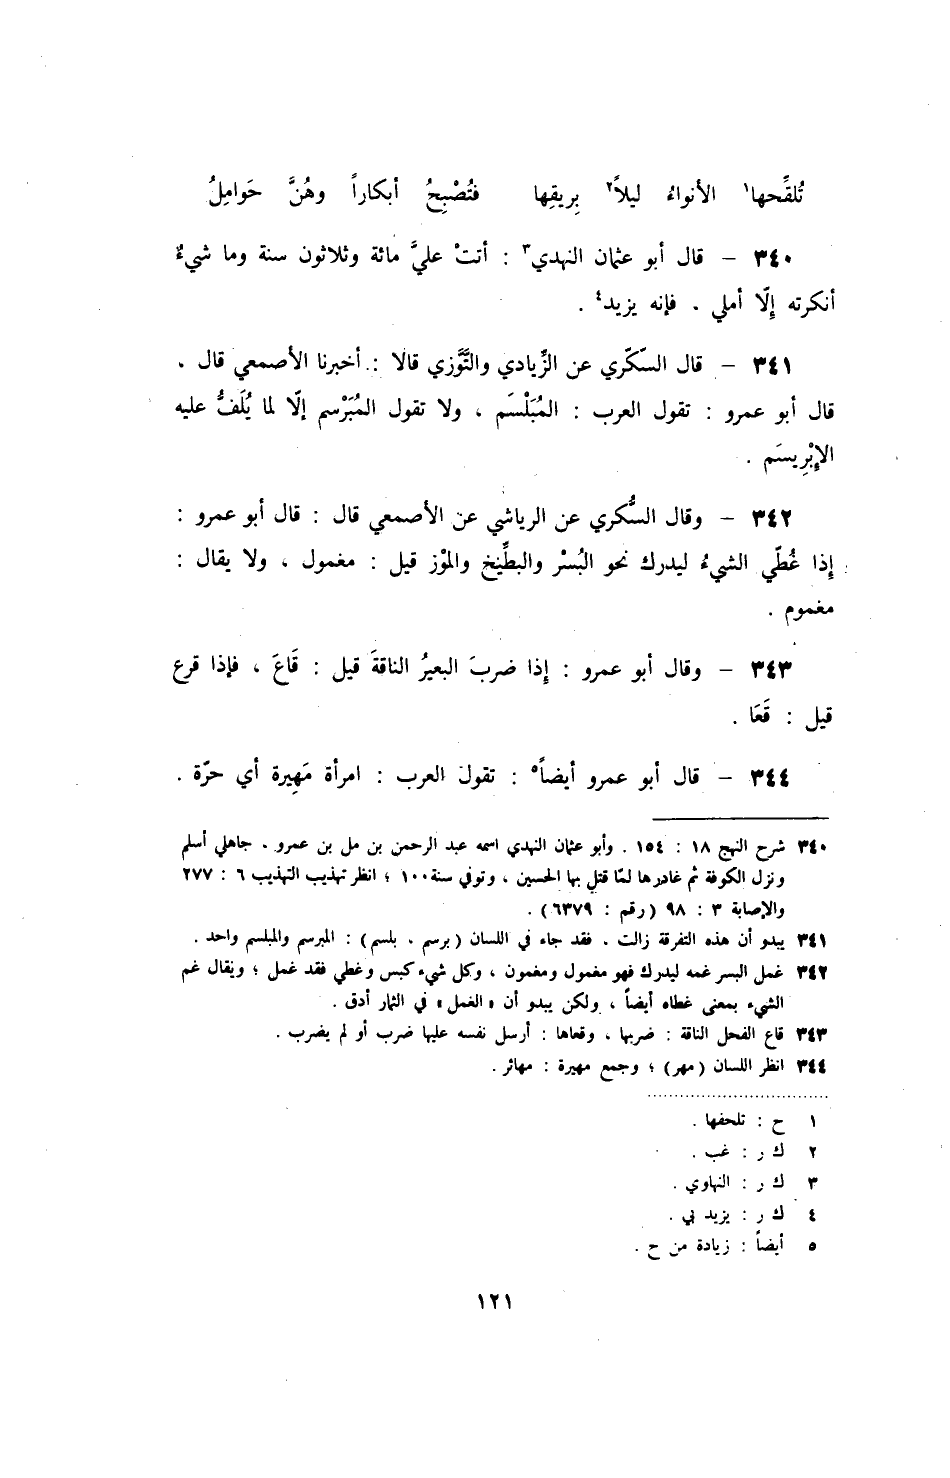 تُلقِّحها١ الأنواءُ ليلاً٢ بِريقِها فتُصْبِحُ أبكاراً وهُنَّ حَوامِلُ
٣٤٠ – قال أبو عثمان النهدي٣ : أتتْ عليَّ مائة وثلاثون سنة وما شيءٌ
أنكرته إلّا أملي . فإنه يزيد٤ .
٣٤١ – قال السكّري عن الزِّيادي والتَّوَّزي قالا : أخبرنا الأصمعي قال .
قال أبو عمرو : تقول العرب : المُبَلْسَم ، ولا تقول المُبَرْسم إلّا لما يُلَفُّ عليه
الإبْرِيسَم .
٣٤٢ – وقال السُّكري عن الرياشي عن الأصمعي قال : قال أبو عمرو :
إذا غُطّي الشيءُ ليدرك نحو البُسْر والبطِّيخ والموْز قيل : مغمول ، ولا يقال :
مغموم .
٣٤٣ – وقال أبو عمرو : إذا ضربَ البعيرُ الناقةَ قيل : قَاعَ ، فإذا قرع
قيل : قَعَا .
٣٤٤ – قال أبو عمرو أيضاً٥ : تقول العرب : امرأة مَهِيرة أي حرّة .
٣٤٠ شرح النهج ١٨ : ١٥٤ . وأبو عثمان النهدي اسمه عبد الرحمن بن مل بن عمرو . جاهلي أسلم
ونزل الكوفة ثم غادرها لمّا قتل بها الحسين ، وتوفي سنة ١٠٠ ؛ انظر تهذيب التهذيب ٦ : ٢٧٧
والإصابة ٣ : ٩٨ (رقم : ٦٣٧٩) .
٣٤١ يبدو أن هذه التفرقة زالت . فقد جاء في اللسان (برسم . بلسم) : المبرسم والمبلسم واحد .
٣٤٢ غمل البسر غمه ليدرك فهو مغمول ومغمون ، وكل شيء كبس وغطي فقد غمل ؛ ويقال غم
الشيء بمعنى غطاه أيضاً ، ولكن يبدو أن «الغمل» في الثمار أدق .
٣٤٣ قاع الفحل الناقة : ضربها ، وقعاها : أرسل نفسه عليها ضرب أو لم يضرب .
٣٤٤ انظر اللسان (مهر) ؛ وجمع مهيرة : مهائر .
١ ح : تلحفها .
٢ ك ر : غب .
٣ ك ر : النهاوي .
٤ ك ر : يزيد بي .
٥ أيضاً : زيادة من ح .
١٢١